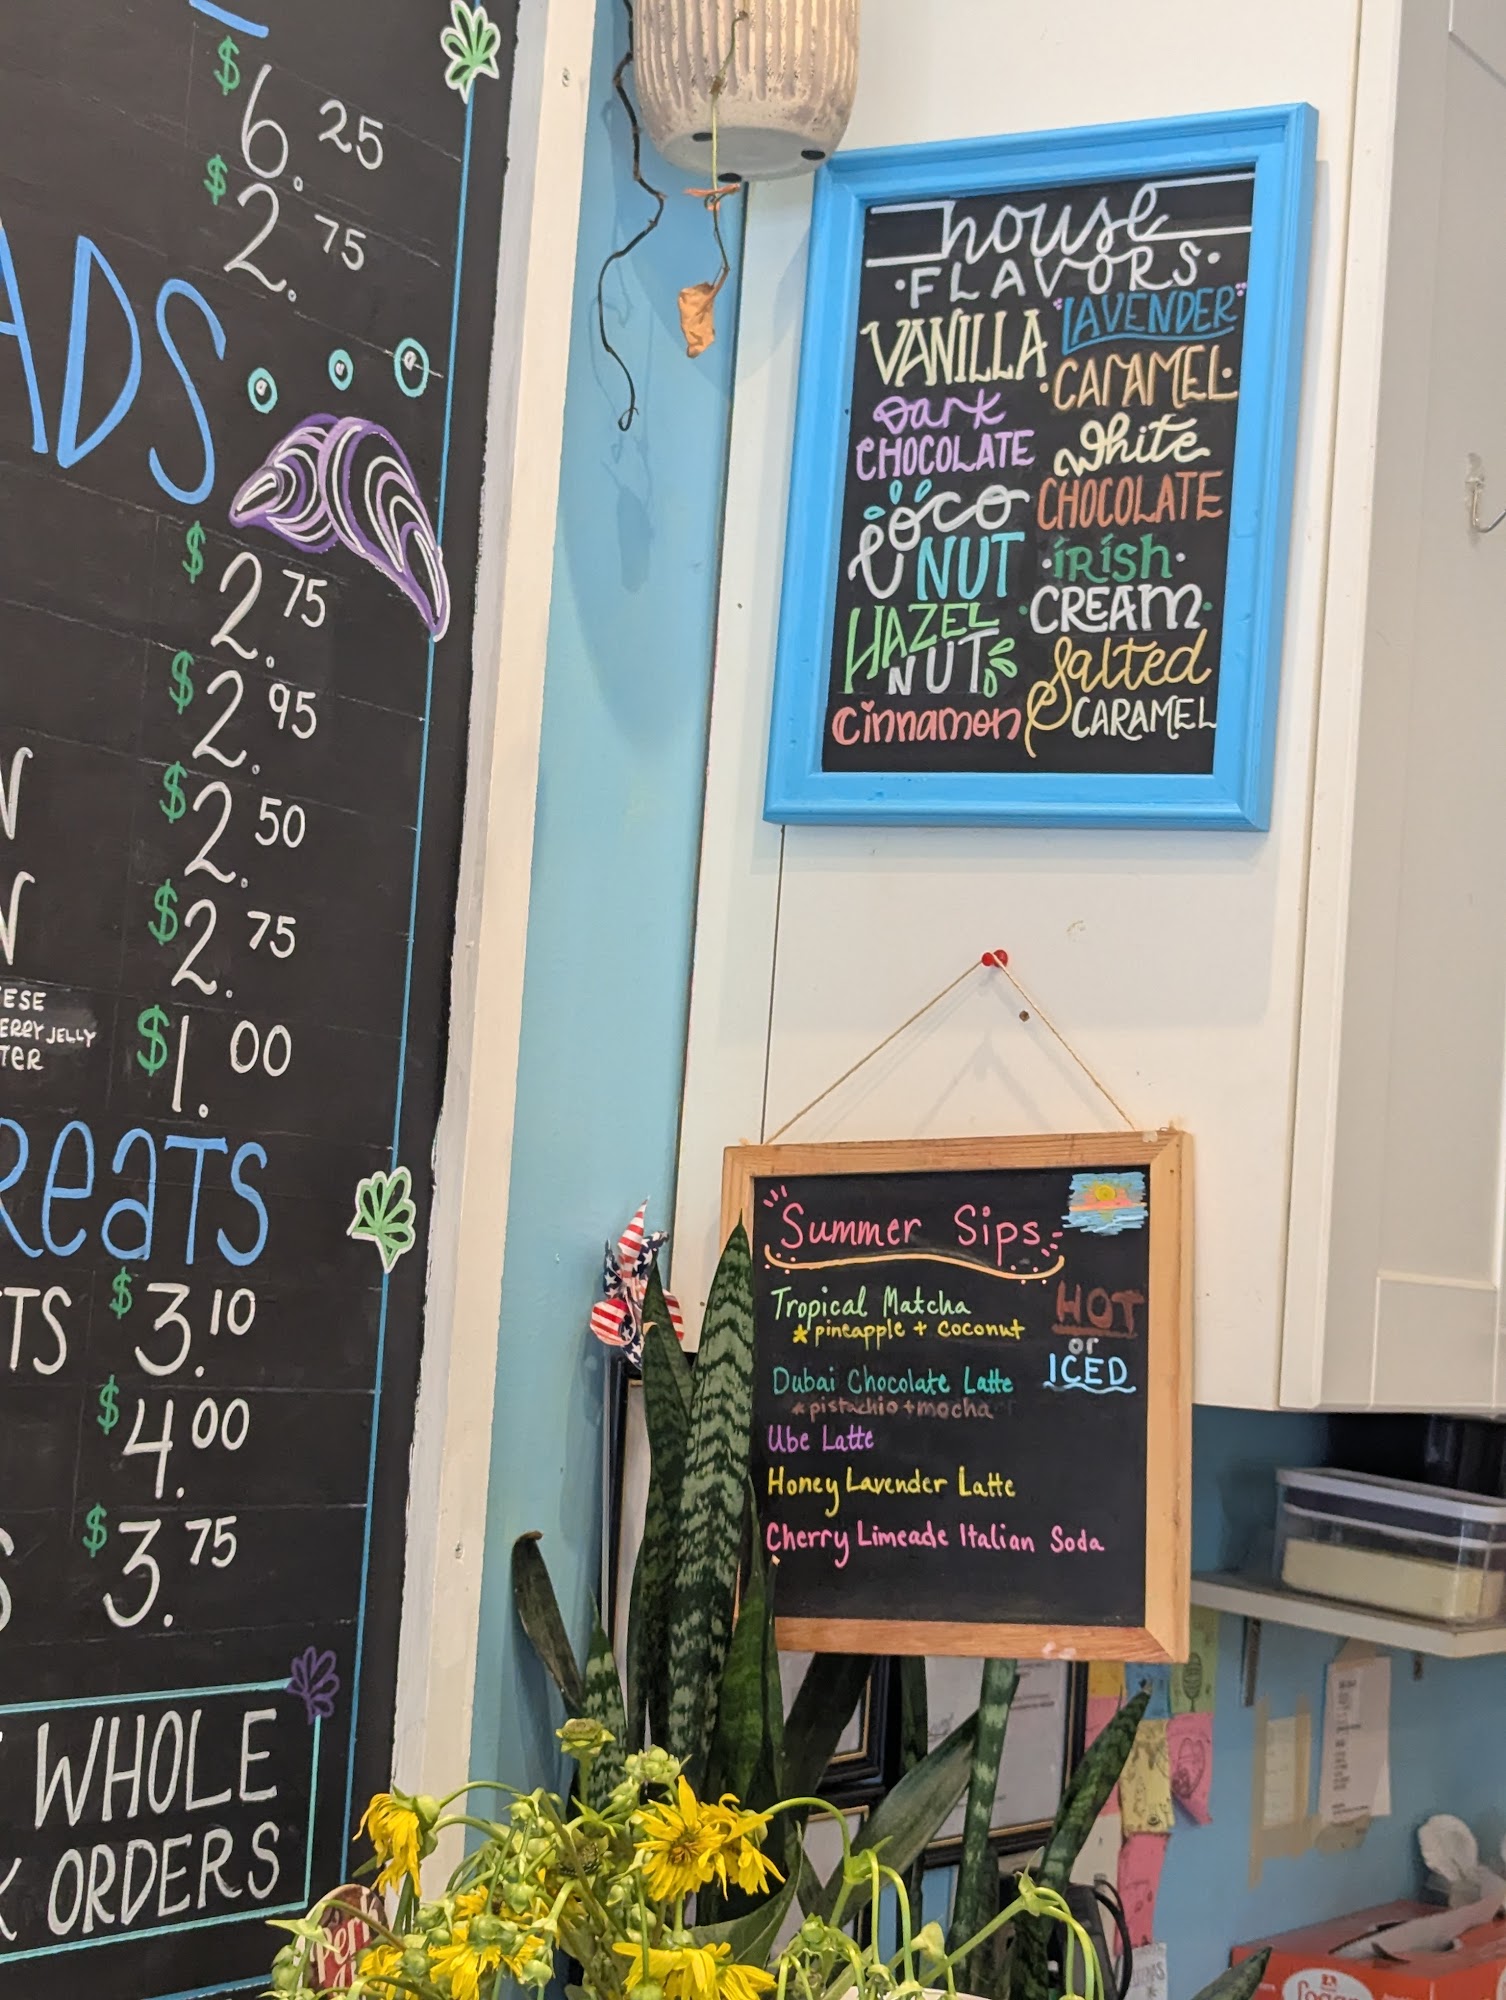 $6.25
$2.75
ADS
$2.75
$2.95
$2.50
$2.75
ESE
ERRY JELLY
TER
$1.00
REATS
TS $3.10
$4.00
S $3.75
WHOLE
ORDERS
house
·FLAVORS·
VANILLA
Dark
CHOCOLATE
COCO
NUT
HAZEL
NUT
Cinnamon
"LAVENDER"
·CARAMEL·
White
CHOCOLATE
·IRISH·
·CREAM·
Salted
CARAMEL
Summer Sips
Tropical Matcha
*pineapple + coconut
Dubai Chocolate Latte
*pistachio + mocha
Ube Latte
Honey Lavender Latte
Cherry Limeade Italian Soda
HOT
or
ICED